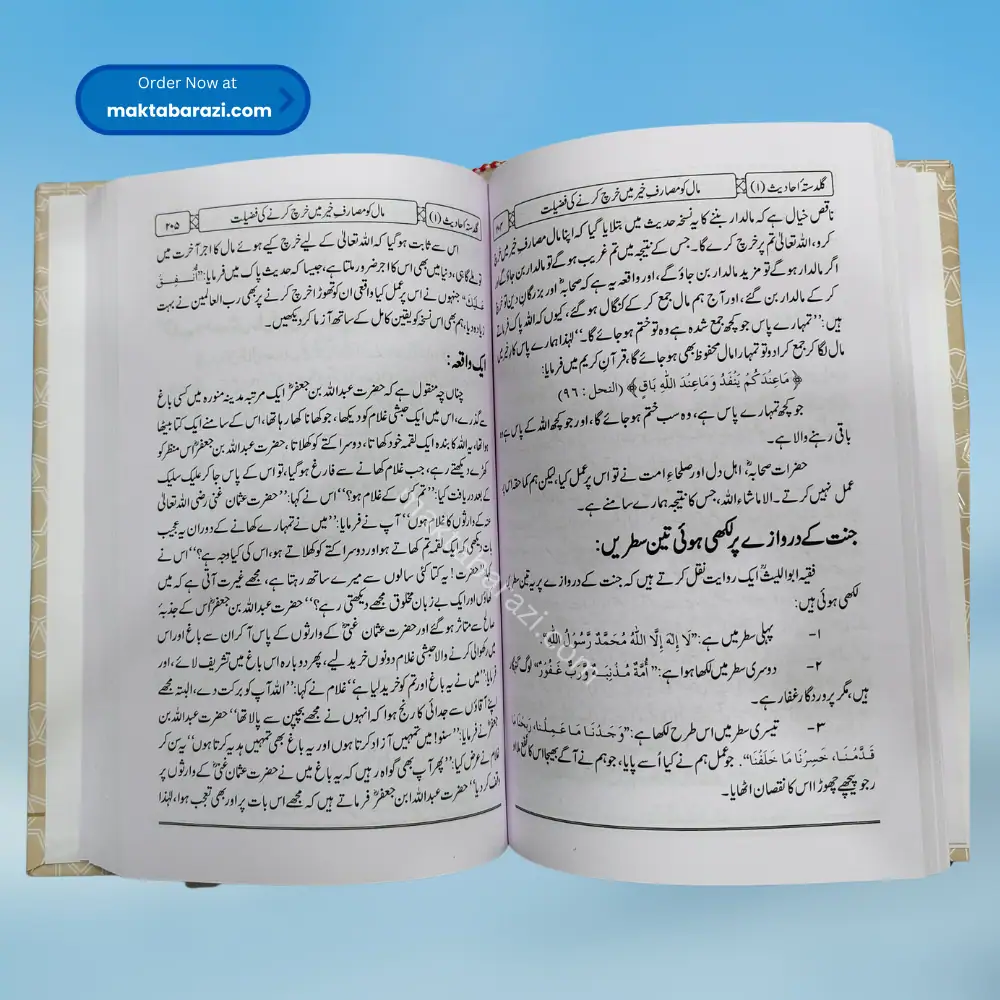 Order Now at
maktabarazi.com
گلدستۂ احادیث (۱) مال کو مصارفِ خیر میں خرچ کرنے کی فضیلت
ناقص خیال ہے کہ مالدار بننے کا یہ نسخہ حدیث میں بتلایا گیا کہ اپنا مال مصارفِ خیر میں خرچ
کرو، اللہ تعالیٰ تم پر خرچ کرے گا۔ جس کے نتیجہ میں تم غریب ہو گے تو مالدار بن جاؤ گے اور
اگر مالدار ہو گے تو مزید مالدار بن جاؤ گے، اور واقعہ یہ ہے کہ صحابہؓ اور بزرگانِ دین تو خرچ
کر کے مالدار بن گئے، اور آج ہم مال جمع کر کے کنگال ہو گئے، کیوں کہ اللہ پاک فرماتے
ہیں: ’’تمہارے پاس جو کچھ جمع شدہ ہے وہ تو ختم ہو جائے گا۔‘‘ لہٰذا ہمارے پاس کارِ خیر میں
مال لگا کر جمع کرا دو تو تمہارا مال محفوظ بھی ہو جائے گا، قرآنِ کریم میں فرمایا:
﴿مَا عِنْدَكُمْ يَنْفَدُ وَمَا عِنْدَ اللّٰهِ بَاقٍ﴾ (النحل: ۹۶)
جو کچھ تمہارے پاس ہے، وہ سب ختم ہو جائے گا، اور جو کچھ اللہ کے پاس ہے وہ
باقی رہنے والا ہے۔
حضرات صحابہؓ، اہل دل اور صلحاءِ امت نے تو اس پر عمل کیا، لیکن ہم کما حقہٗ اس پر
عمل نہیں کرتے۔ الا ماشاء اللہ، جس کا نتیجہ ہمارے سامنے ہے۔
جنت کے دروازے پر لکھی ہوئی تین سطریں:
فقیہ ابواللیثؒ ایک روایت نقل کرتے ہیں کہ جنت کے دروازے پر یہ تین سطریں
لکھی ہوئی ہیں:
۱- پہلی سطر میں ہے: ’’لَا إِلٰهَ إِلَّا اللّٰهُ مُحَمَّدٌ رَّسُوْلُ اللّٰهِ‘‘
۲- دوسری سطر میں لکھا ہوا ہے: ’’أُمَّةٌ مُذْنِبَةٌ وَرَبٌّ غَفُوْرٌ‘‘ لوگ گنہگار
ہیں، مگر پروردگار غفار ہے۔
۳- تیسری سطر میں اس طرح لکھا ہے: ’’وَجَدْنَا مَا عَمِلْنَا، رَبِحْنَا مَا
قَدَّمْنَا، خَسِرْنَا مَا خَلَّفْنَا‘‘۔ جو عمل ہم نے کیا اُسے پایا، جو ہم نے آگے بھیجا اس کا نفع ملا، او
ر جو پیچھے چھوڑا اس کا نقصان اٹھایا۔
گلدستۂ احادیث (۱) مال کو مصارفِ خیر میں خرچ کرنے کی فضیلت ۲۰۵
اس سے ثابت ہو گیا کہ اللہ تعالیٰ کے لیے خرچ کیے ہوئے مال کا اجر آخرت میں
تو ملے گا ہی، دنیا میں بھی اس کا اجر ضرور ملتا ہے، جیسا کہ حدیث پاک میں فرمایا: ’’أُنْفِقْ
عَلَيْكَ‘‘ جنہوں نے اس پر عمل کیا واقعی ان کو تھوڑا خرچ کرنے پر بھی رب العالمین نے بہت
زیادہ دیا، ہم بھی اس نسخہ کو یقین کامل کے ساتھ آزما کر دیکھیں۔
ایک واقعہ:
چناں چہ منقول ہے کہ حضرت عبداللہ بن جعفرؓ ایک مرتبہ مدینہ منورہ میں کسی باغ
سے گذرے، اس میں ایک حبشی غلام کو دیکھا، جو کھانا کھا رہا تھا، اس کے سامنے ایک کتا بیٹھا
ہوا تھا، یہ اللہ کا بندہ ایک لقمہ خود کھاتا، دوسرا کتے کو کھلاتا، حضرت عبداللہ بن جعفرؓ اس منظر کو
کھڑے دیکھتے رہے، جب غلام کھانے سے فارغ ہو گیا، تو اس کے پاس جا کر علیک سلیک
کے بعد دریافت کیا: ’’تم کس کے غلام ہو؟‘‘ اس نے کہا: ’’حضرت عثمان غنی رضی اللہ تعالیٰ
عنہ کے وارثوں کا غلام ہوں‘‘ آپ نے فرمایا: ’’میں نے تمہارے کھانے کے دوران یہ عجیب
بات دیکھی کہ ایک لقمہ تم کھاتے ہو اور دوسرا کتے کو کھلاتے ہو، اس کی کیا وجہ ہے؟‘‘ اس نے
کہا: ’’حضرت! یہ کتا کئی سالوں سے میرے ساتھ رہتا ہے، مجھے غیرت آتی ہے کہ میں
کھاؤں اور ایک بے زبان مخلوق مجھے دیکھتی رہے؟‘‘ حضرت عبداللہ بن جعفرؓ اس کے جذبۂ
صالح سے متاثر ہو گئے اور حضرت عثمان غنیؓ کے وارثوں کے پاس آ کر ان سے باغ اور اس
میں رکھوالی کرنے والا حبشی غلام دونوں خرید لیے، پھر دوبارہ اس باغ میں تشریف لائے، اور
فرمایا: ’’میں نے یہ باغ اور تم کو خرید لیا ہے‘‘ غلام نے کہا: ’’اللہ آپ کو برکت دے، البتہ مجھے
اپنے آقاؤں سے جدائی کا رنج ہوا کہ انہوں نے مجھے بچپن سے پالا تھا‘‘ حضرت عبداللہ بن
جعفرؓ نے فرمایا: ’’سنو! میں تمہیں آزاد کرتا ہوں اور یہ باغ بھی تمہیں ہدیہ کرتا ہوں‘‘ یہ سن کر
غلام نے عرض کیا: ’’پھر آپ بھی گواہ رہیں کہ یہ باغ میں نے حضرت عثمان غنیؓ کے وارثوں پر
وقف کر دیا‘‘ حضرت عبداللہ ابن جعفرؓ فرماتے ہیں کہ مجھے اس بات پر اور بھی تعجب ہوا، لہٰذا